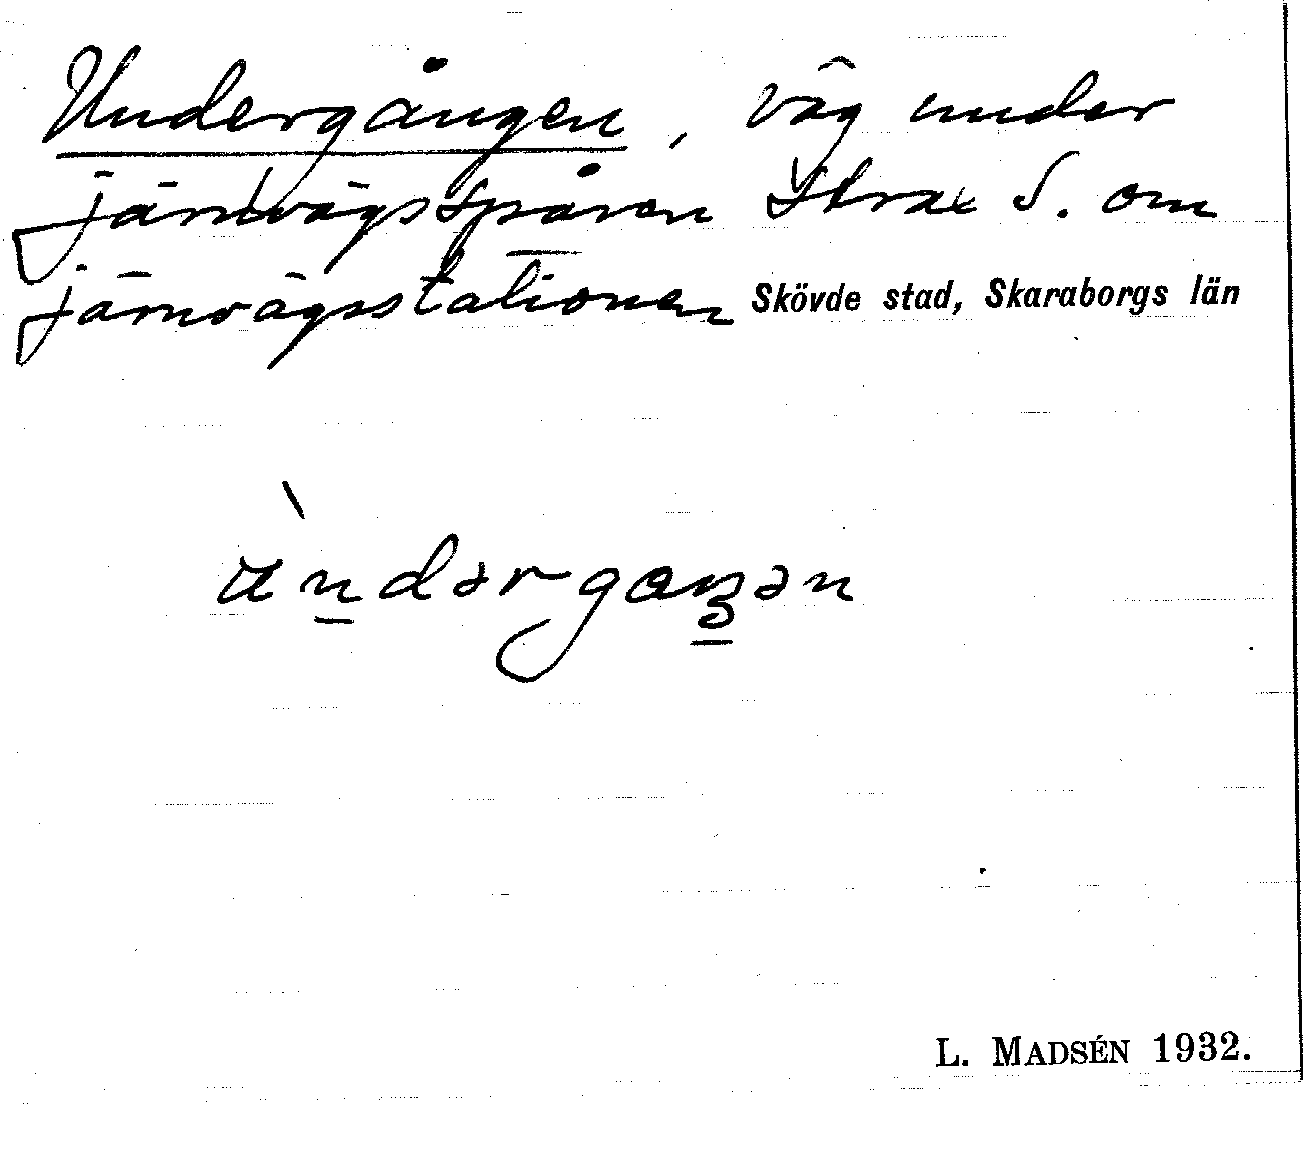 Undergången, väg under
järnvägsspåren strax S. om
järnvägsstationen Skövde stad, Skaraborgs län
L. MADSÉN 1932.